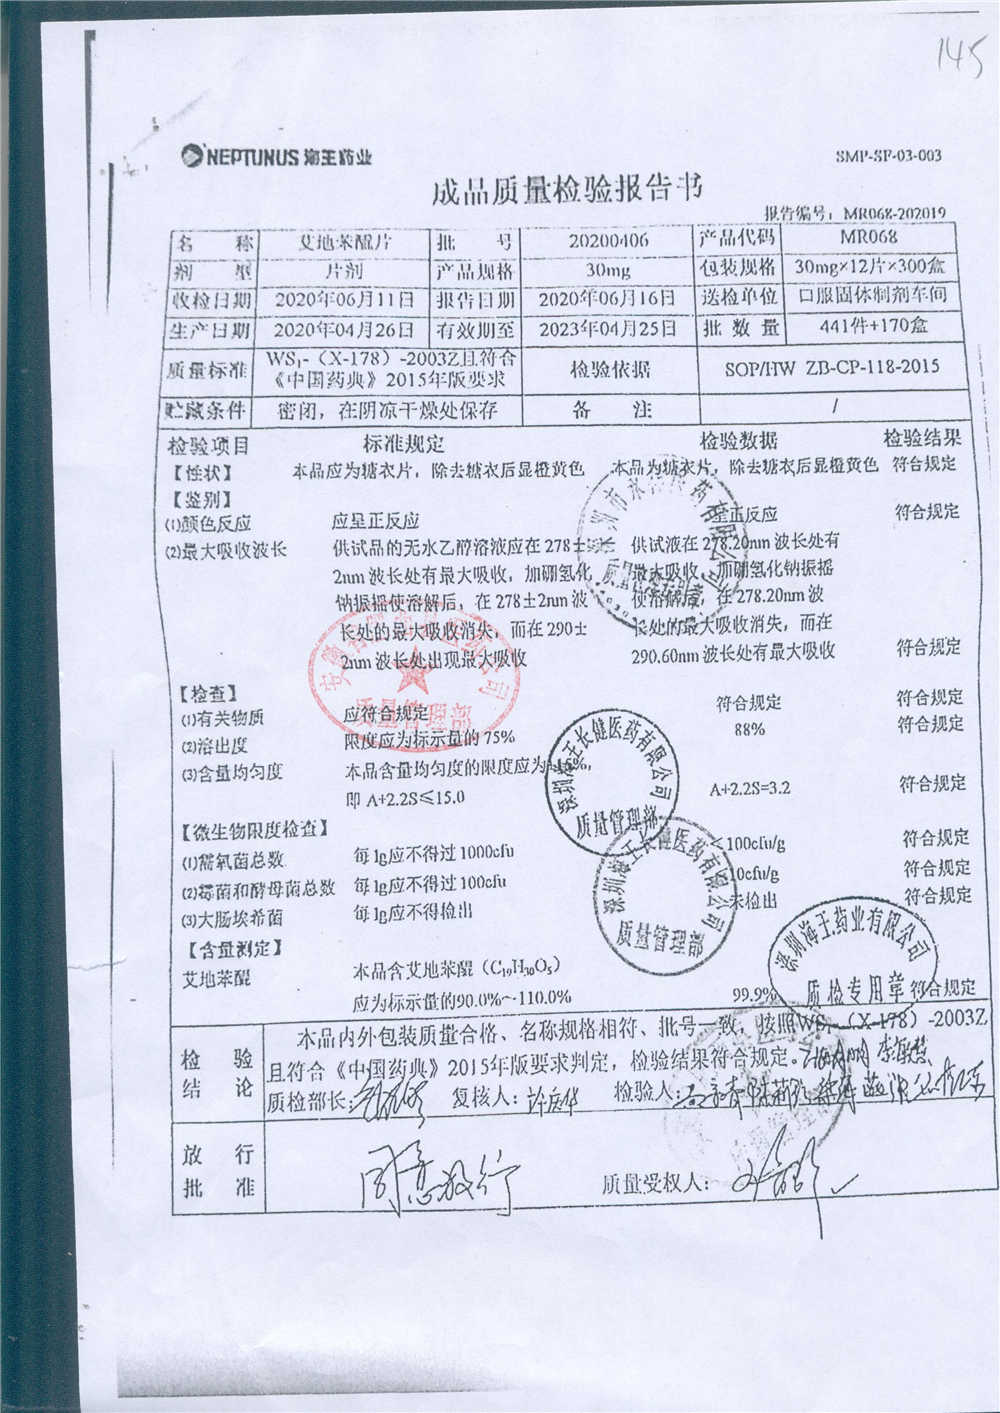 145
NEPTUNUS 海王药业
SMP-SF-03-003
成品质量检验报告书
报告编号：MR068-202019
名 称 艾地苯醌片 批 号 20200406 产品代码 MR068
剂 型 片剂 产品规格 30mg 包装规格 30mg×12片×300盒
收检日期 2020年06月11日 报告日期 2020年06月16日 送检单位 口服固体制剂车间
生产日期 2020年04月26日 有效期至 2023年04月25日 批 数 量 441件+170盒
质量标准 WS₁-（X-178）-2003Z且符合《中国药典》2015年版要求 检验依据 SOP/HW ZB-CP-118-2015
贮藏条件 密闭，在阴凉干燥处保存 备 注 /
检验项目 标准规定 检验数据 检验结果
【性状】 本品应为糖衣片，除去糖衣后显橙黄色 本品为糖衣片，除去糖衣后显橙黄色 符合规定
【鉴别】
⑴颜色反应 应呈正反应 呈正反应 符合规定
⑵最大吸收波长 供试品的无水乙醇溶液应在278± 供试液在278.20nm波长处有
2nm波长处有最大吸收，加硼氢化 最大吸收，加硼氢化钠振摇
钠振摇使溶解后，在278±2nm波 使溶解后，在278.20nm波
长处的最大吸收消失，而在290± 长处的最大吸收消失，而在
2nm波长处出现最大吸收 290.60nm波长处有最大吸收 符合规定
【检查】
⑴有关物质 应符合规定 符合规定 符合规定
⑵溶出度 限度应为标示量的75% 88% 符合规定
⑶含量均匀度 本品含量均匀度的限度应为±15%，
即A+2.2S≤15.0 A+2.2S=3.2 符合规定
【微生物限度检查】
⑴需氧菌总数 每1g应不得过1000cfu <100cfu/g 符合规定
⑵霉菌和酵母菌总数 每1g应不得过100cfu 10cfu/g 符合规定
⑶大肠埃希菌 每1g应不得检出 未检出 符合规定
【含量测定】
艾地苯醌 本品含艾地苯醌（C₁₉H₃₀O₅）
应为标示量的90.0%~110.0% 99.9% 符合规定
检 验 结 论 本品内外包装质量合格、名称规格相符、批号一致，按照WS₁-（X-178）-2003Z
且符合《中国药典》2015年版要求判定，检验结果符合规定。
质检部长： 复核人：许庆华 检验人：
放 行 批 准 同意放行 质量受权人：
质量管理部
深圳海王长健医药有限公司
质量管理部
深圳海王长健医药有限公司
质量管理部
深圳海王药业有限公司
质检专用章